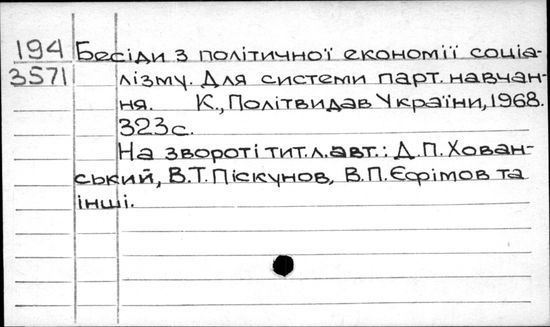 194 Бесіди з політичної економії соціа-
3571 лізму. Для системи парт. навчан-
ня. К., Політвидав України, 1968.
323с.
На звороті тит.л.авт.: Д.П.Хован-
ський, В.Т.Піскунов, В.П.Єфімов та
інші.